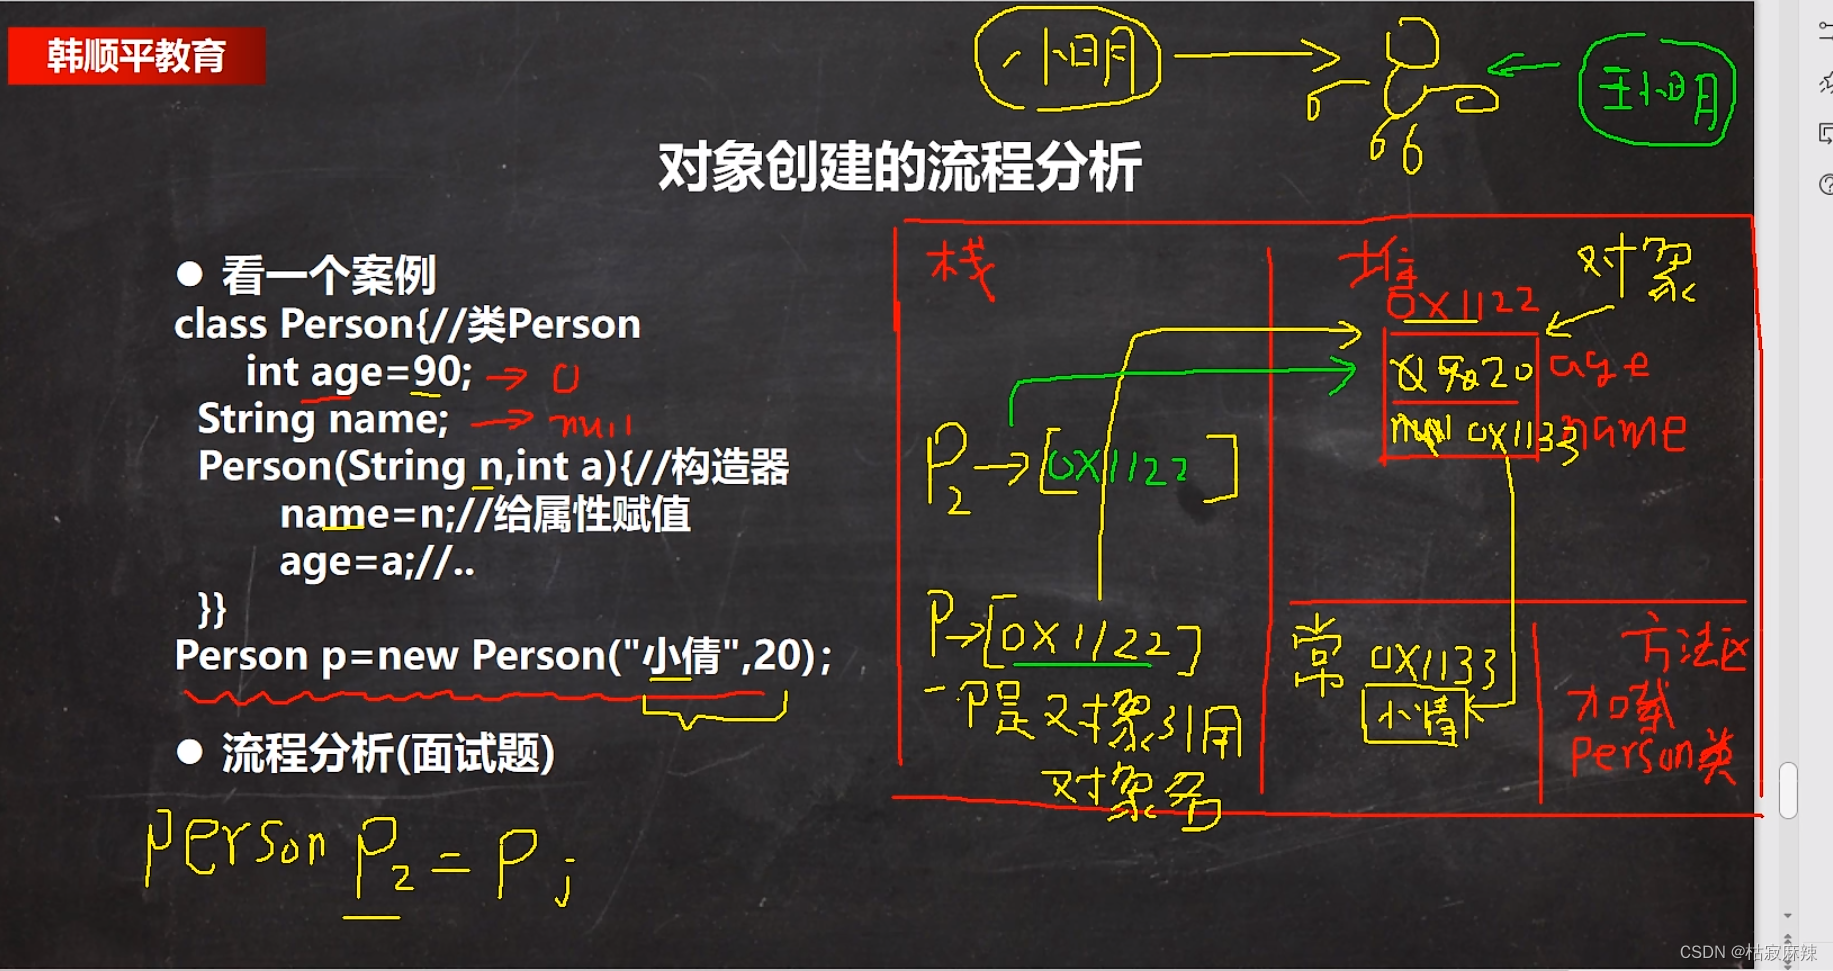 韩顺平教育
小明
王小明
对象创建的流程分析
● 看一个案例
class Person{//类Person
int age=90; → 0
String name; → null
Person(String n,int a){//构造器
name=n;//给属性赋值
age=a;//..
}}
Person p=new Person("小倩",20);
● 流程分析(面试题)
Person P2 = P;
栈
堆
对象
0X1122
20 age
null 0X1133 name
P2→[0X1122]
P→[0X1122]
P是对象引用
对象名
常 0X1133
小倩
方法区
加载
Person类
CSDN @枯寂麻辣